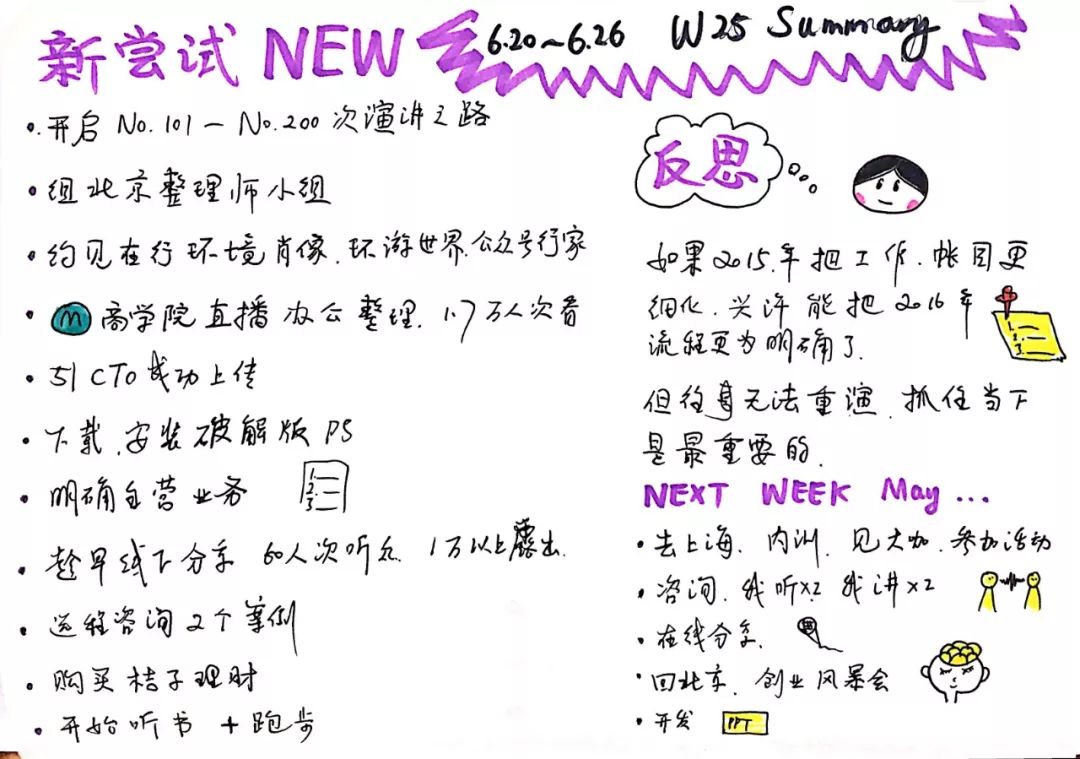 新尝试 NEW 6.20~6.26 W25 Summary
·开启 No.101－No.200次演讲之路
·组北京整理师小组
·约见在行环境肖像.环游世界.公众号行家
·M商学院直播办公整理.1.7万人次看
·51CTO成功上传
·下载.安装破解版PS
·明确自营业务
1.
2.
3.
·趁早线下分享 60人次听众 1万以上露出.
·远程咨询2个案例
·购买桔子理财
·开始听书+跑步
反思
如果2015年把工作.帐目更
细化.兴许能把2016年
流程更为明确了.
1.
2.
3.
但往事无法重演.抓住当下
是最重要的.
NEXT WEEK May...
·去上海.内训.见大咖.参加活动
·咨询.我听×2 我讲×2
·在线分享.
·回北京.创业风暴会
·开发 PPT